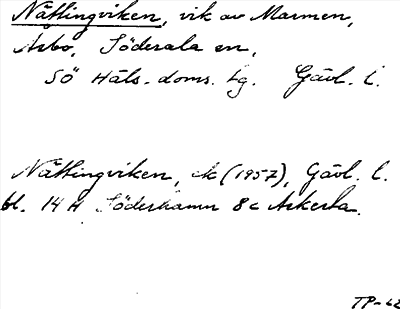 Nätlingviken, vik av Marmen,
Arbo, Söderala sn,
SÖ Häls. doms. tg. Gävl. l.
Nätlingviken, ek (1957), Gävl. l.
bl. 14 H Söderhamn 8 c Askesta.
TP-62